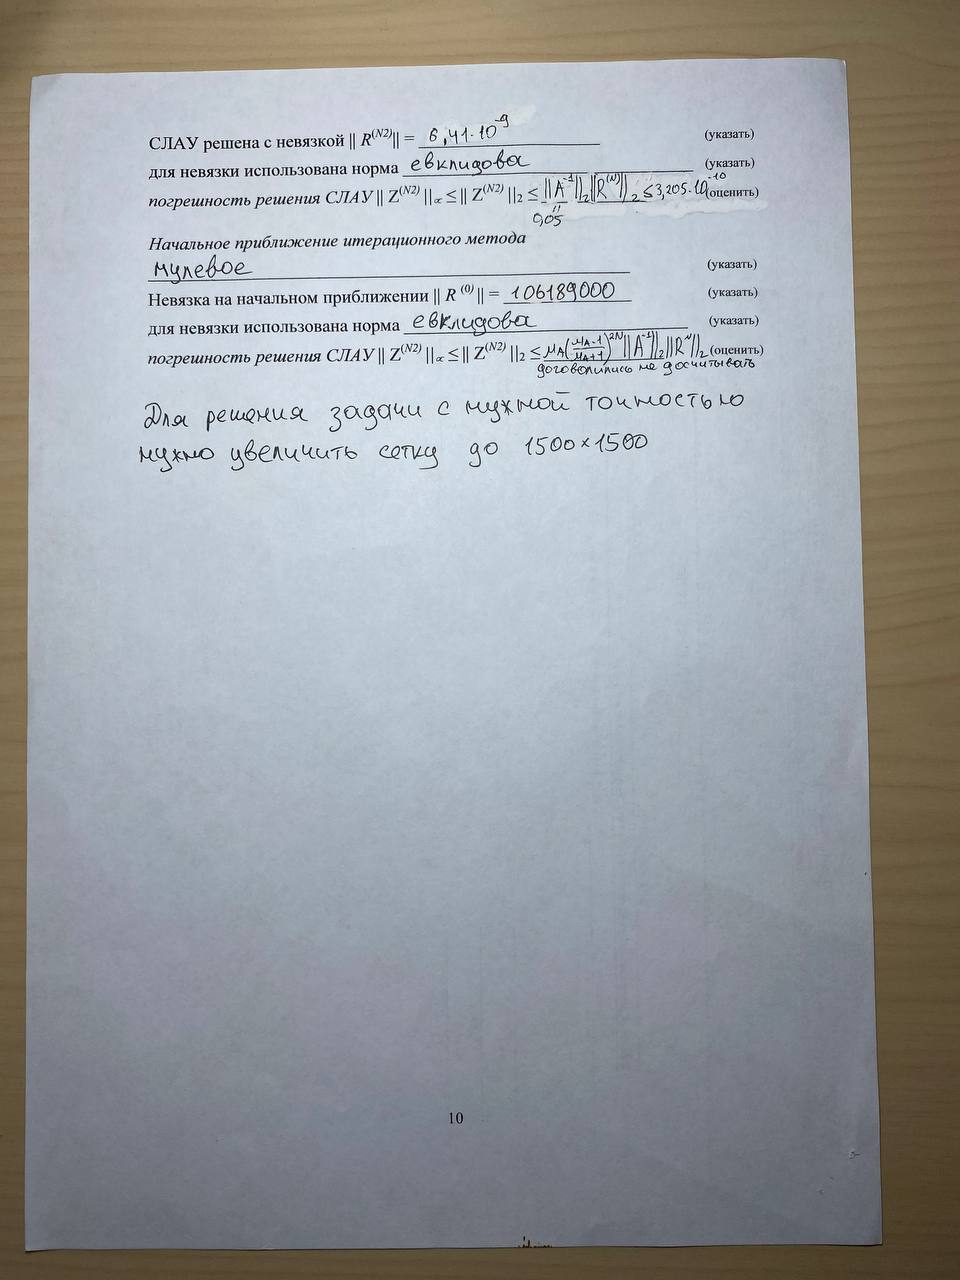 СЛАУ решена с невязкой || R^(N2) || = 6,41·10^-9 (указать)
для невязки использована норма евклидова (указать)
погрешность решения СЛАУ || Z^(N2) ||∞ ≤ || Z^(N2) ||₂ ≤ ||A^-1||₂ ||R^(N)||₂ ≤ 3,205·10^-10 (оценить)
0,05
Начальное приближение итерационного метода
нулевое (указать)
Невязка на начальном приближении || R^(0) || = 106189000 (указать)
для невязки использована норма евклидова (указать)
погрешность решения СЛАУ || Z^(N2) ||∞ ≤ || Z^(N2) ||₂ ≤ μ_A((μ_A-1)/(μ_A+1))^2N ||A^-1||₂ ||R^N||₂ (оценить)
договолились не досчитывать
Для решения задачи с нужной точностью
нужно увеличить сетку до 1500×1500
10